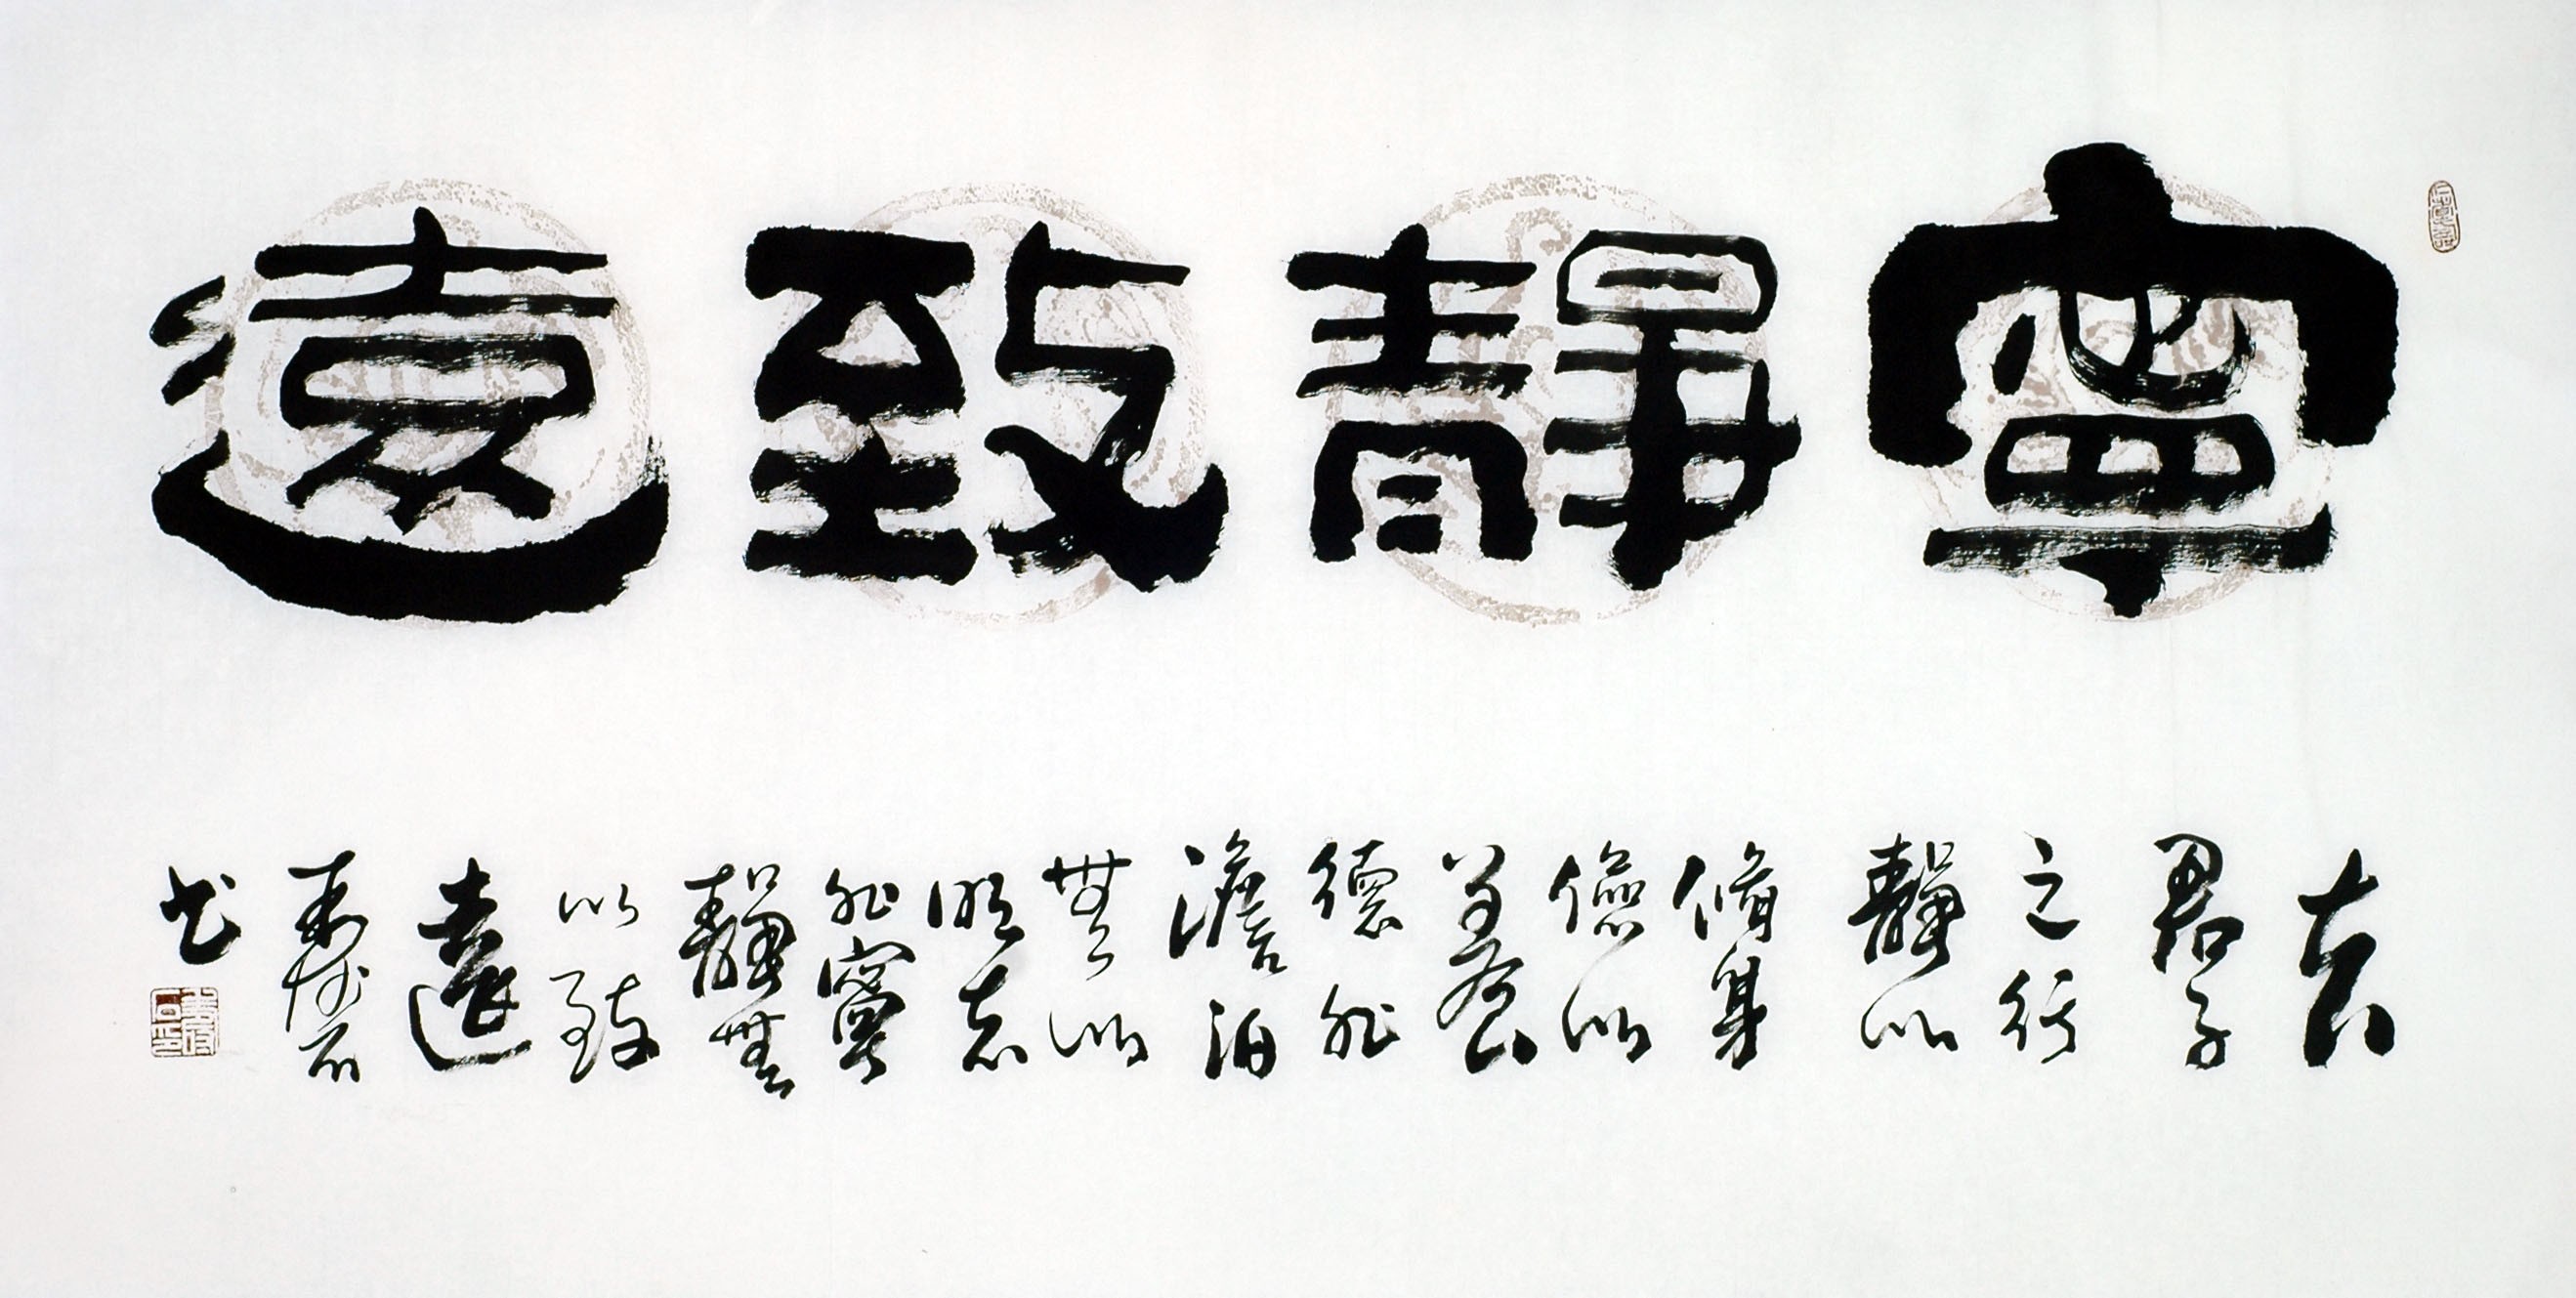 寧靜致遠
夫
君子
之行
靜以
脩身
儉以
養
德非
澹泊
無以
明志
非寧
靜無
以致
遠
石
书